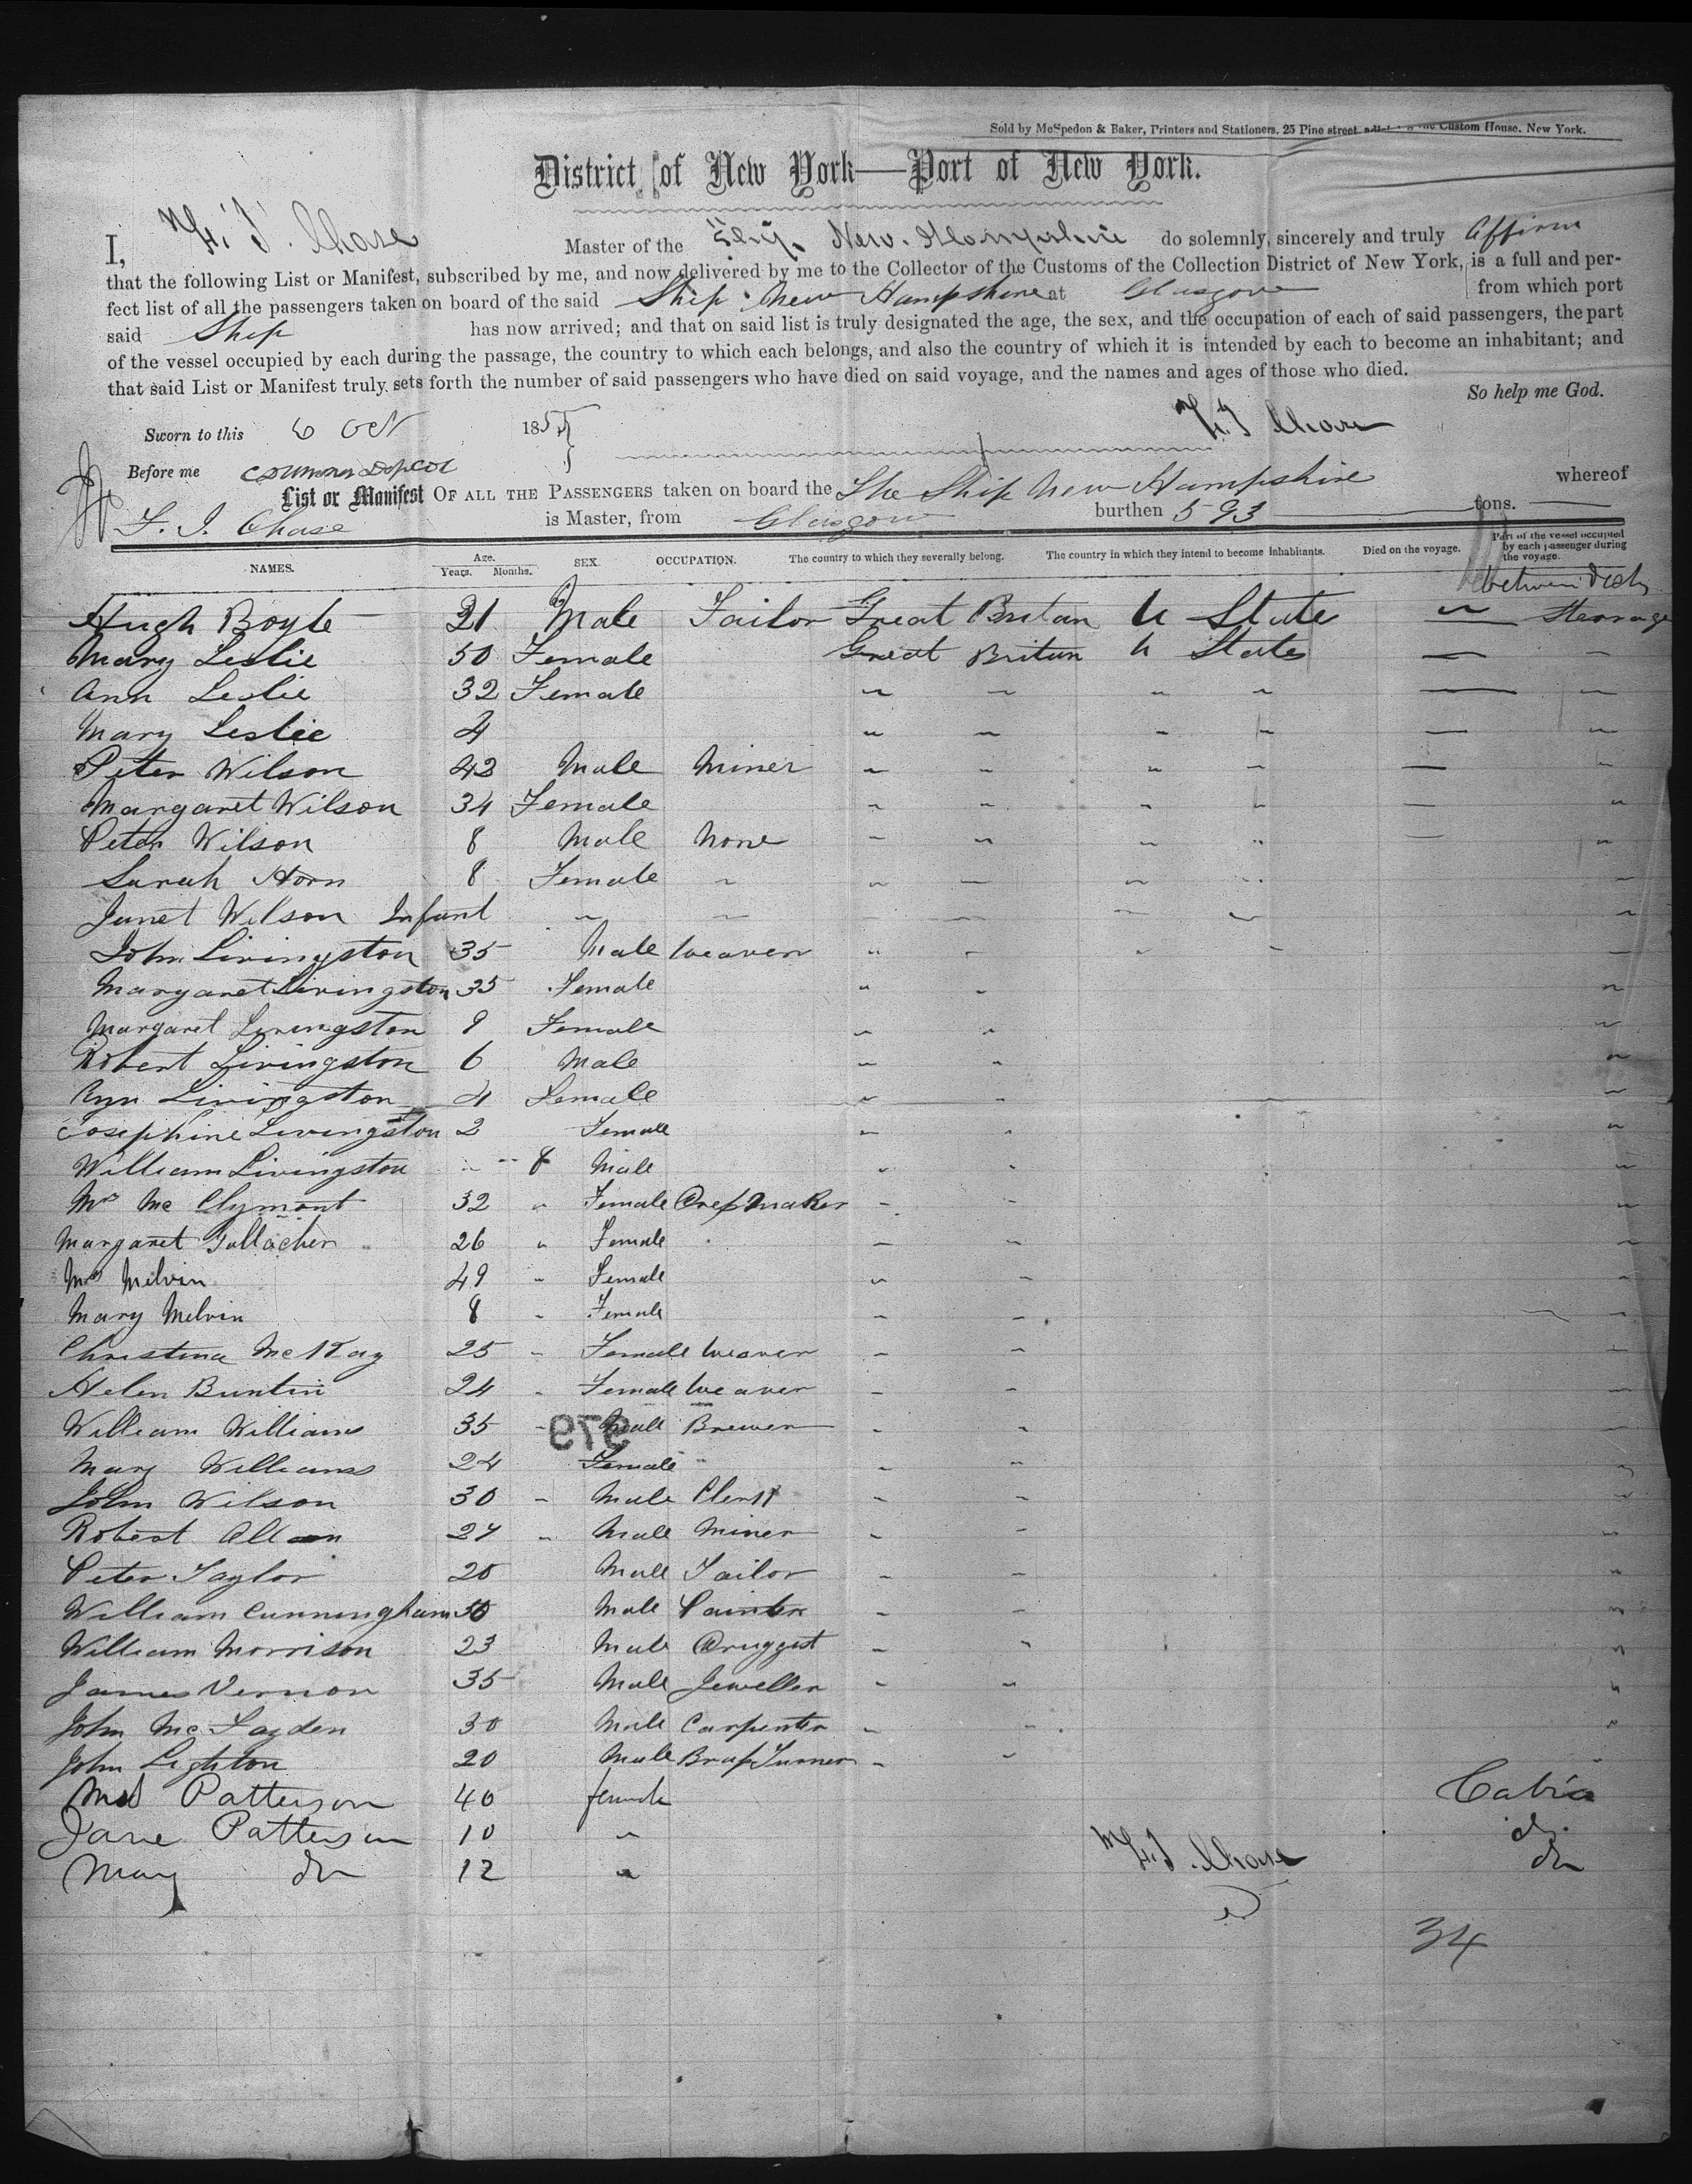 Sold by McSpedon & Baker, Printers and Stationers. 25 Pine street, the Custom House. New York.
District of New York—Port of New York.
I, Chase Master of the Ship New Hampshire do solemnly, sincerely and truly Affirm
that the following List or Manifest, subscribed by me, and now delivered by me to the Collector of the Customs of the Collection District of New York, is a full and per-
fect list of all the passengers taken on board of the said Ship New Hampshire at Glasgow from which port
said Ship has now arrived; and that on said list is truly designated the age, the sex, and the occupation of each of said passengers, the part
of the vessel occupied by each during the passage, the country to which each belongs, and also the country of which it is intended by each to become an inhabitant; and
that said List or Manifest truly sets forth the number of said passengers who have died on said voyage, and the names and ages of those who died.
So help me God.
Sworn to this 6 Oct 1855 Chase
Before me
List or Manifest OF ALL THE PASSENGERS taken on board the The Ship New Hampshire whereof
F. J. Chase is Master, from Glasgow burthen 593 tons.
NAMES. Age. Years. Months. SEX. OCCUPATION. The country to which they severally belong. The country in which they intend to become inhabitants. Died on the voyage. Part of the vessel occupied by each passenger during the voyage.
between Decks
Hugh Boyle 21 Male Tailor Great Britan U State ~ Stearage
Mary Leslie 50 Female Great Britan U States — ~
Ann Leslie 32 Female ~ ~ ~ ~ — ~
Mary Leslie 4 ~ ~ ~ ~ — ~
Peter Wilson 42 Male Miner ~ ~ ~ ~ — ~
Margaret Wilson 34 Female ~ ~ ~ ~ — ~
Peter Wilson 8 Male None ~ ~ ~ ~ — ~
Sarah Horn 8 Female ~ ~ ~ ~ ~ ~
Janet Wilson Infant ~ ~ ~ ~ ~ ~
John Livingston 35 Male Weaver ~ ~ ~ ~ ~
Margaret Livingston 35 Female ~ ~ ~
Margaret Livingston 9 Female ~ ~ ~
Robert Livingston 6 Male ~ ~ ~
Livingston 4 Female ~ ~ ~
Josephine Livingston 2 Female ~ ~ ~
William Livingston ~ 8 Male ~ ~ ~
Mrs Mc Clymont 32 " Female Dressmaker ~ ~ ~
Margaret Gallacher 26 " Female ~ ~ ~
Mrs Melvin 49 " Female ~ ~ ~
Mary Melvin 8 " Female ~ ~ ~
Christina McKay 25 " Female Weaver ~ ~ ~
Helen Buntin 24 " Female Weaver ~ ~ ~
William Williams 35 " Male Brewer ~ ~ ~
979
Mary Williams 24 Female ~ ~ ~
John Wilson 30 " Male Clerk ~ ~ ~
Robert Allan 27 " Male Miner ~ ~ ~
Peter Taylor 20 Male Tailor ~ ~ ~
William Cunningham 30 Male Painter ~ ~ ~
William Morrison 23 Male Druggist ~ ~ ~
James Vernon 35 Male Jeweller ~ ~ ~
John McFayden 30 Male Carpenter ~ ~ ~
John Lighton 20 Male Brass Turner ~ ~ ~
Mrs Patterson 40 female Cabin
Jane Patterson 10 ~ do
Mary do 12 ~ Chase do
34